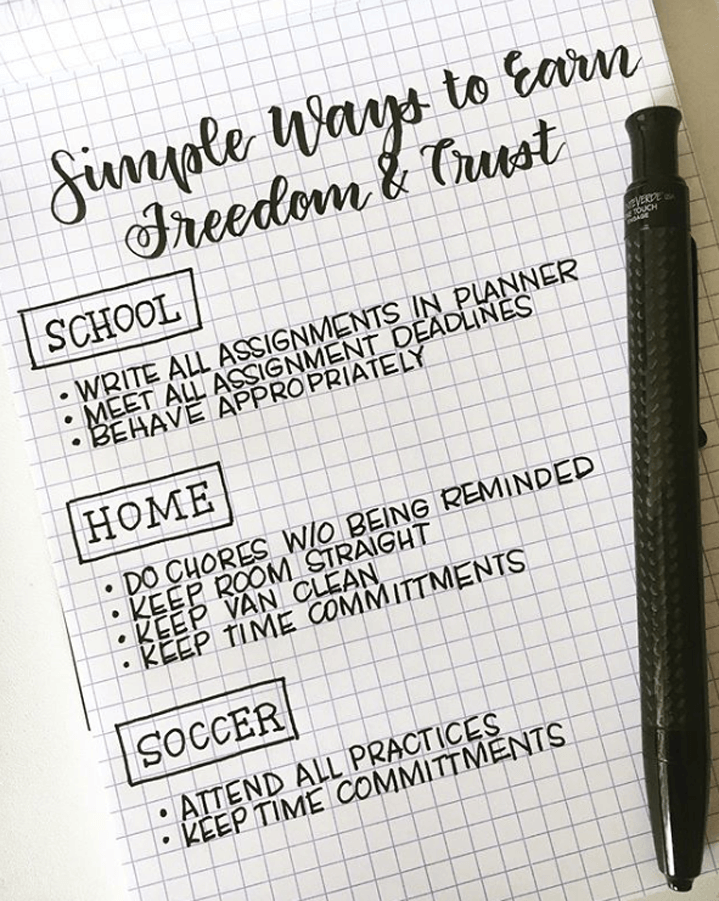 Simple Ways to Earn
Freedom & Trust
SCHOOL
• WRITE ALL ASSIGNMENTS IN PLANNER
• MEET ALL ASSIGNMENT DEADLINES
• BEHAVE APPROPRIATELY
HOME
• DO CHORES W/O BEING REMINDED
• KEEP ROOM STRAIGHT
• KEEP VAN CLEAN
• KEEP TIME COMMITTMENTS
SOCCER
• ATTEND ALL PRACTICES
• KEEP TIME COMMITTMENTS
TOUCH